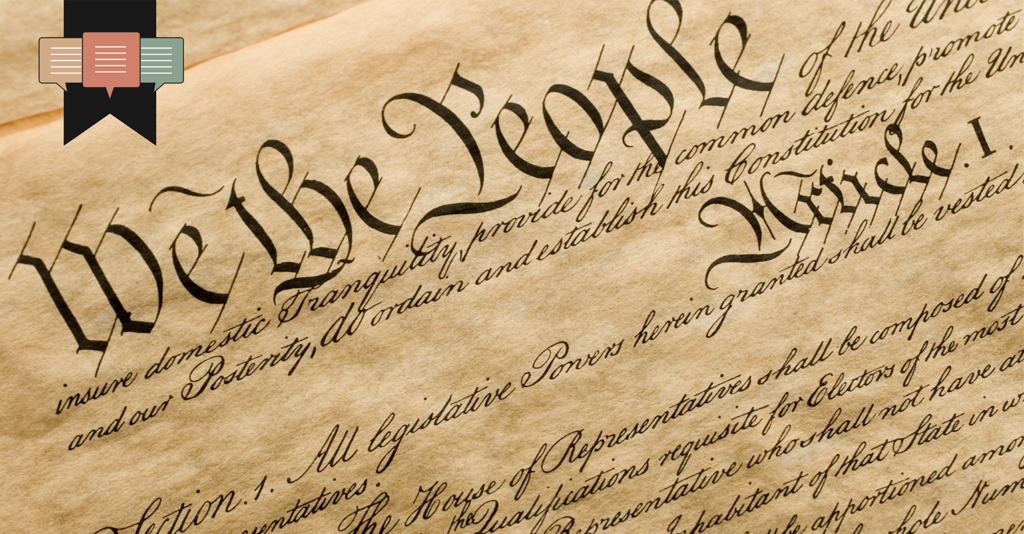 We the People of the Unit
insure domestic Tranquility, provide for the common defence, promote
and our Posterity, do ordain and establish this Constitution for the Un
Article. I.
Section. 1. All legislative Powers herein granted shall be vested
sentatives.
The House of Representatives shall be composed of
the Qualifications requisite for Electors of the most
Representative who shall not have at
Inhabitant of that State in w
be apportioned amon
whole Num